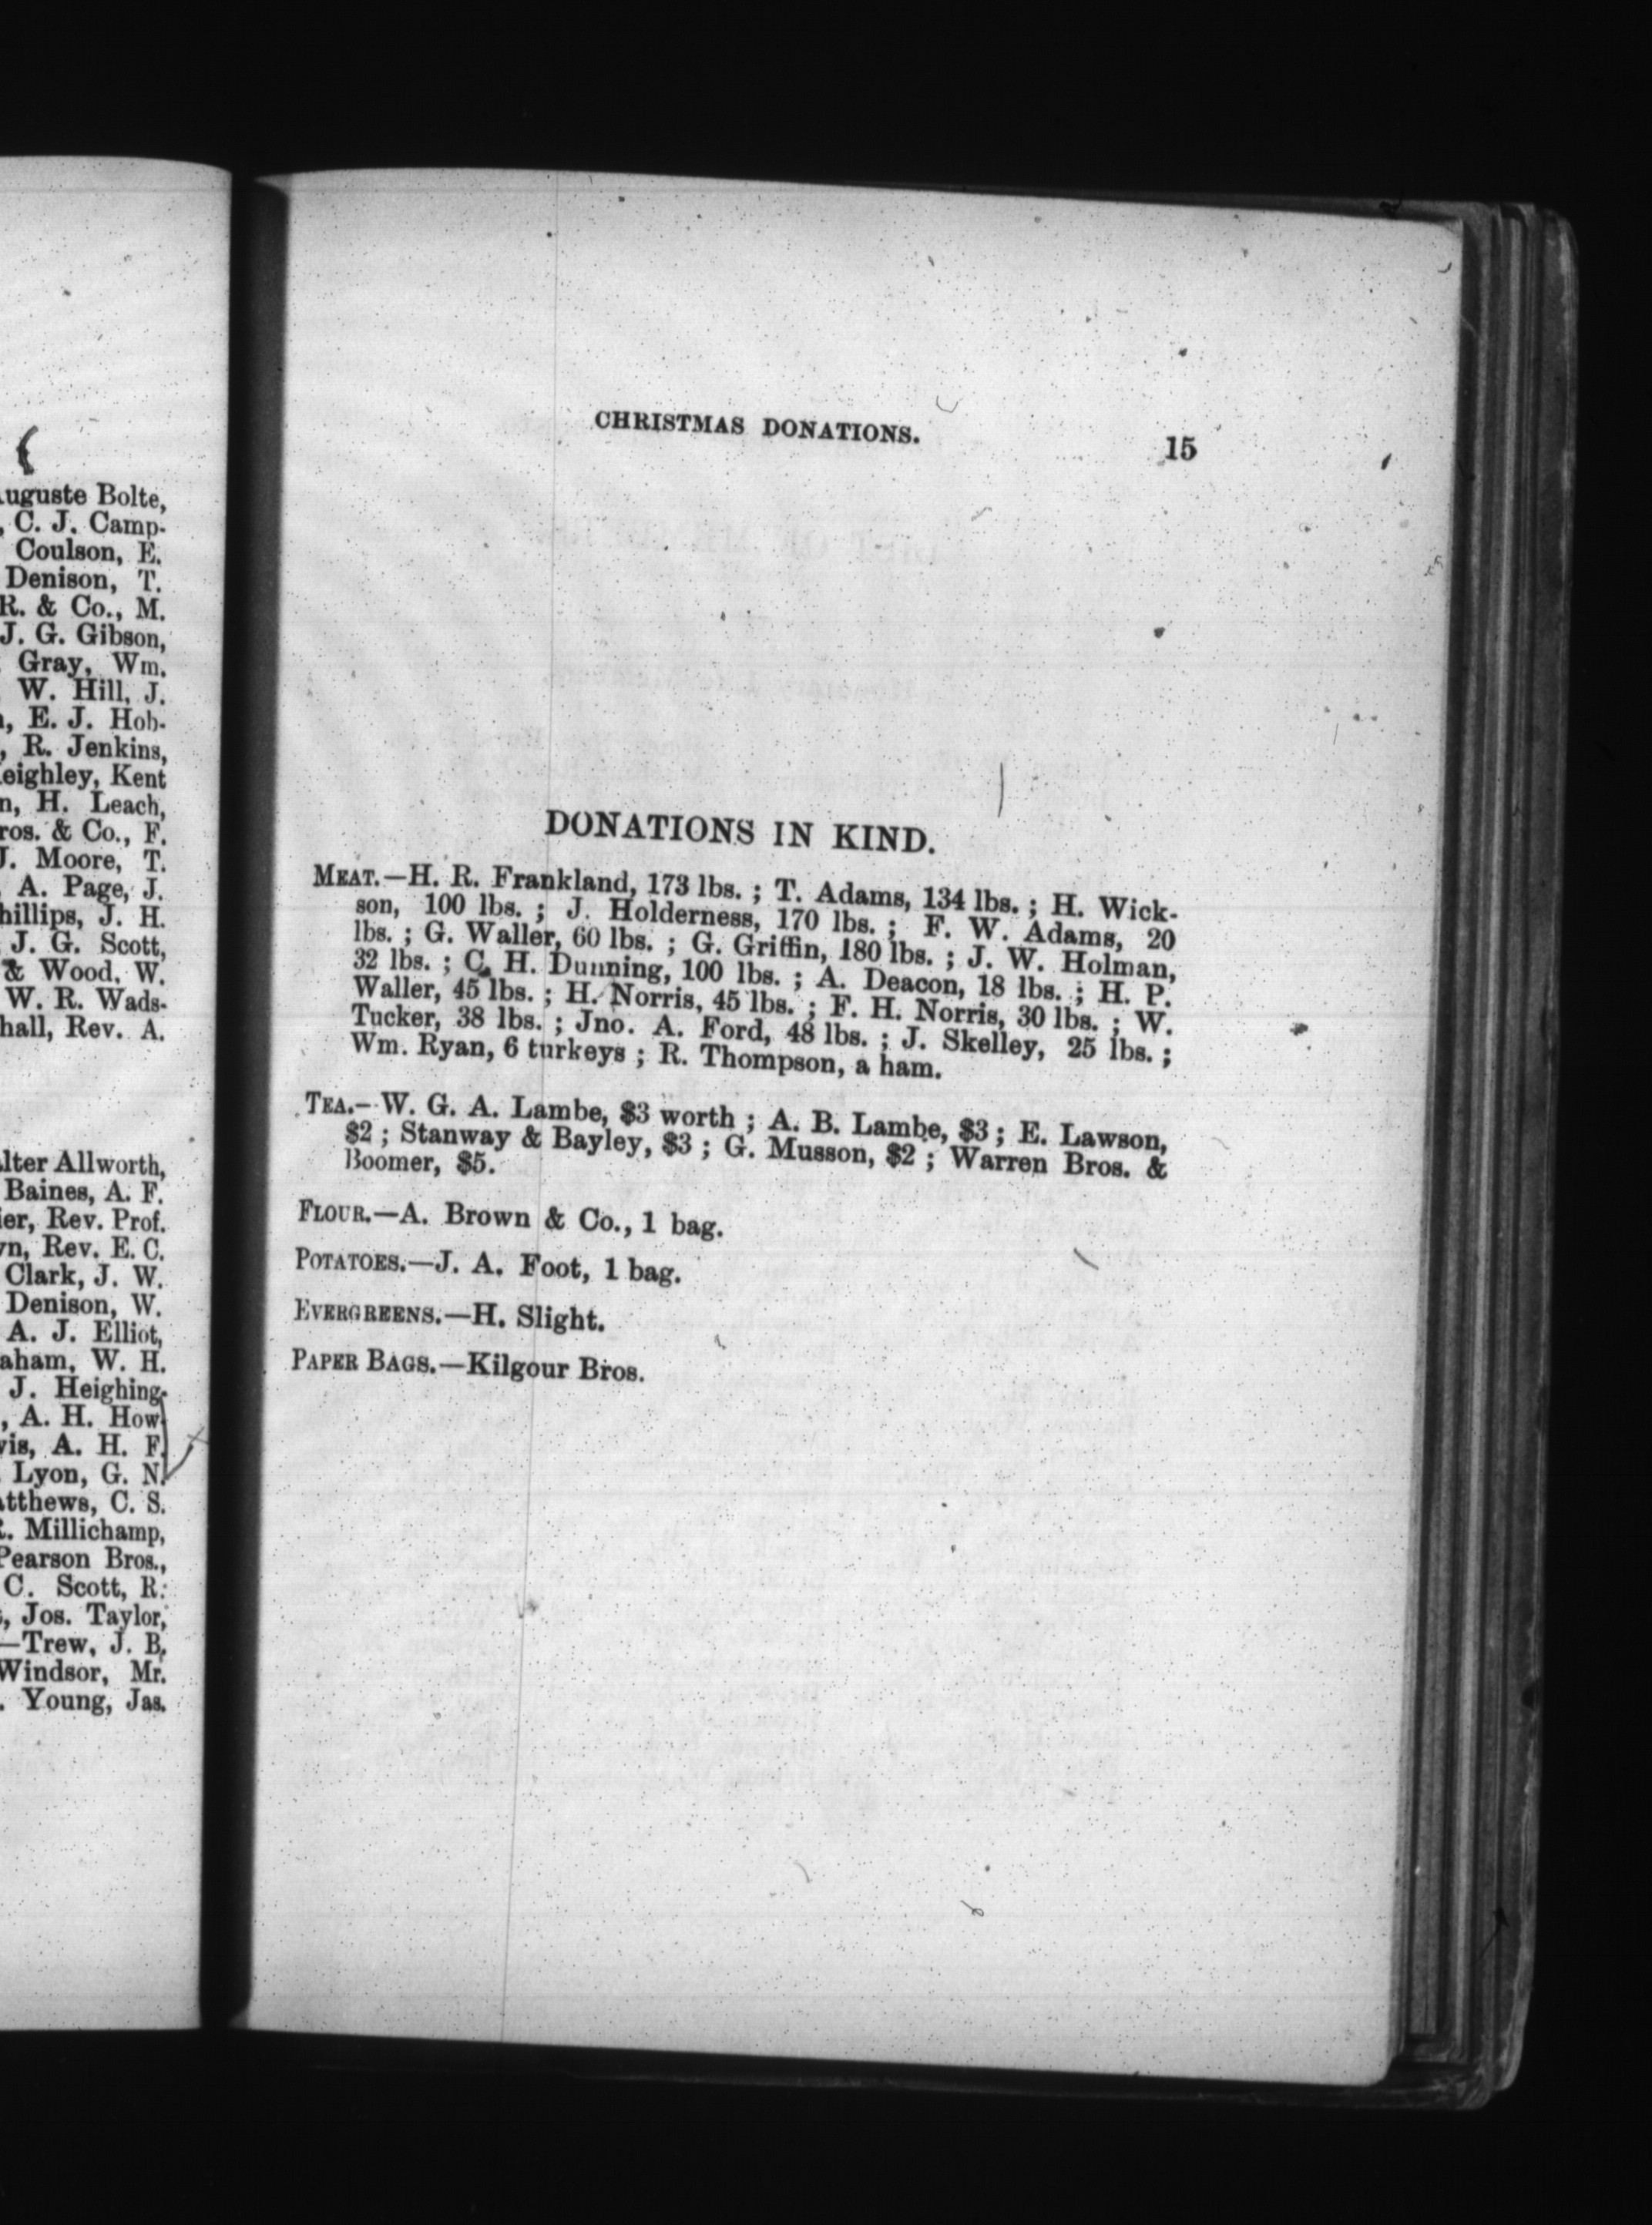 Auguste Bolte,
, C. J. Camp-
Coulson, E.
Denison, T.
R. & Co., M.
J. G. Gibson,
Gray, Wm.
W. Hill, J.
E. J. Hob-
, R. Jenkins,
eighley, Kent
n, H. Leach,
ros. & Co., F.
J. Moore, T.
A. Page, J.
hillips, J. H.
J. G. Scott,
& Wood, W.
W. R. Wads-
hall, Rev. A.
lter Allworth,
Baines, A. F.
ier, Rev. Prof.
vn, Rev. E. C.
Clark, J. W.
Denison, W.
A. J. Elliot,
aham, W. H.
J. Heighing-
, A. H. How
vis, A. H. F.
Lyon, G. N.
atthews, C. S.
R. Millichamp,
Pearson Bros.,
C. Scott, R.
, Jos. Taylor,
—Trew, J. B.
Windsor, Mr.
. Young, Jas.
CHRISTMAS DONATIONS. 15
DONATIONS IN KIND.
MEAT.—H. R. Frankland, 173 lbs. ; T. Adams, 134 lbs. ; H. Wick-
son, 100 lbs. ; J. Holderness, 170 lbs. ; F. W. Adams, 20
lbs. ; G. Waller, 60 lbs. ; G. Griffin, 180 lbs. ; J. W. Holman,
32 lbs. ; C. H. Dunning, 100 lbs. ; A. Deacon, 18 lbs. ; H. P.
Waller, 45 lbs. ; H. Norris, 45 lbs. ; F. H. Norris, 30 lbs. ; W.
Tucker, 38 lbs. ; Jno. A. Ford, 48 lbs. ; J. Skelley, 25 lbs. ;
Wm. Ryan, 6 turkeys ; R. Thompson, a ham.
TEA.—W. G. A. Lambe, $3 worth ; A. B. Lambe, $3 ; E. Lawson,
$2 ; Stanway & Bayley, $3 ; G. Musson, $2 ; Warren Bros. &
Boomer, $5.
FLOUR.—A. Brown & Co., 1 bag.
POTATOES.—J. A. Foot, 1 bag.
EVERGREENS.—H. Slight.
PAPER BAGS.—Kilgour Bros.